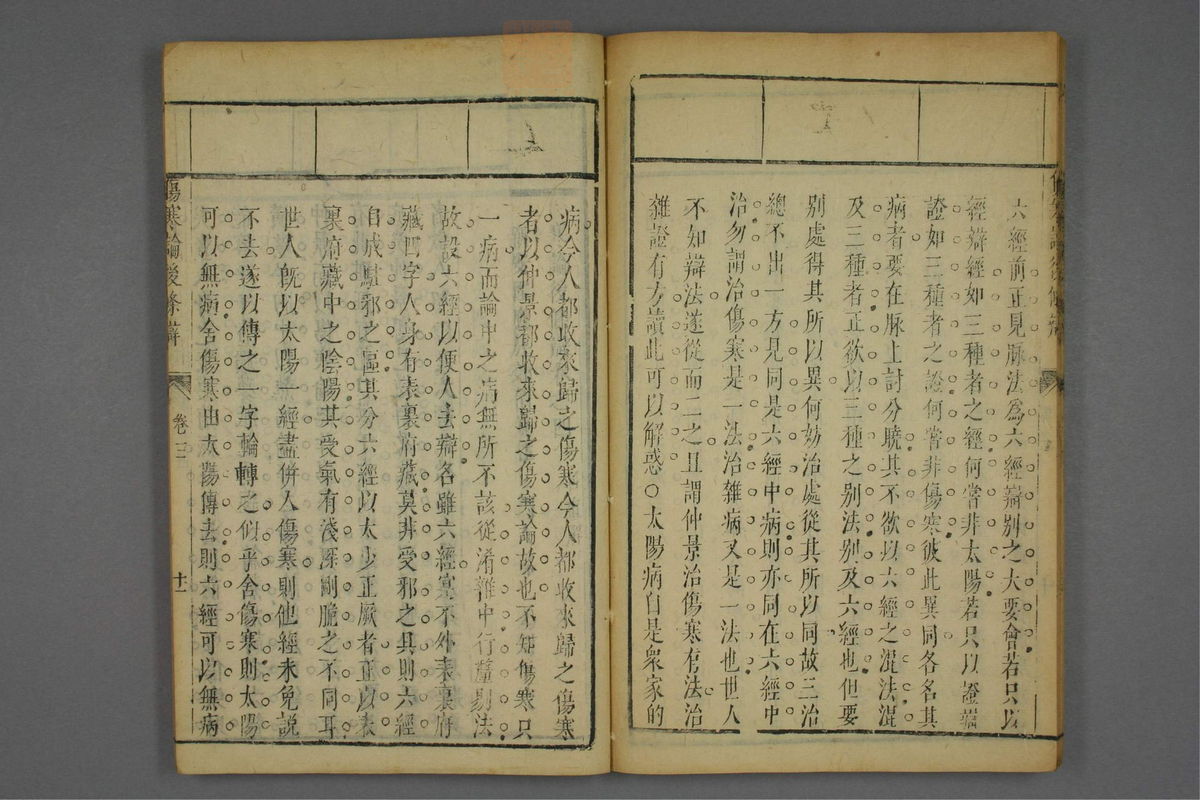 六經前正見脉法爲六經辯別之大要會若只以
經辯經如三種者之經何嘗非太陽若只以證辯
證如三種者之證何嘗非傷寒彼此異同各各其
病者要在脉上討分曉其不欲以六經之混法混
及三種者正欲以三種之別法別及六經也但要
別處得其所以異何妨治處從其所以同故三治
總不出一方見同是六經中病則亦同在六經中
治勿謂治傷寒是一法治雜病又是一法也世人
不知辯法遂從而二之且謂仲景治傷寒有法治
雜證有方讀此可以解惑○太陽病自是衆家的
病今人都收來歸之傷寒今人都收來歸之傷寒
者以仲景都收來歸之傷寒論故也不知傷寒只
一病而論中之病無所不該從淆雜中行釐剔法
故設六經以便人去辯名雖六經寔不外表裏府
藏四字人身有表裏府藏莫非受邪之具則六經
自成駐邪之區其分六經以太少正厥者正以表
裏府藏中之陰陽其受氣有淺深剛脆之不同耳
世人旣以太陽一經盡併入傷寒則他經未免説
不去遂以傳之一字輪轉之似乎舍傷寒則太陽
可以無病舍傷寒由太陽傳去則六經可以無病
傷寒論後條辯
卷三
十一